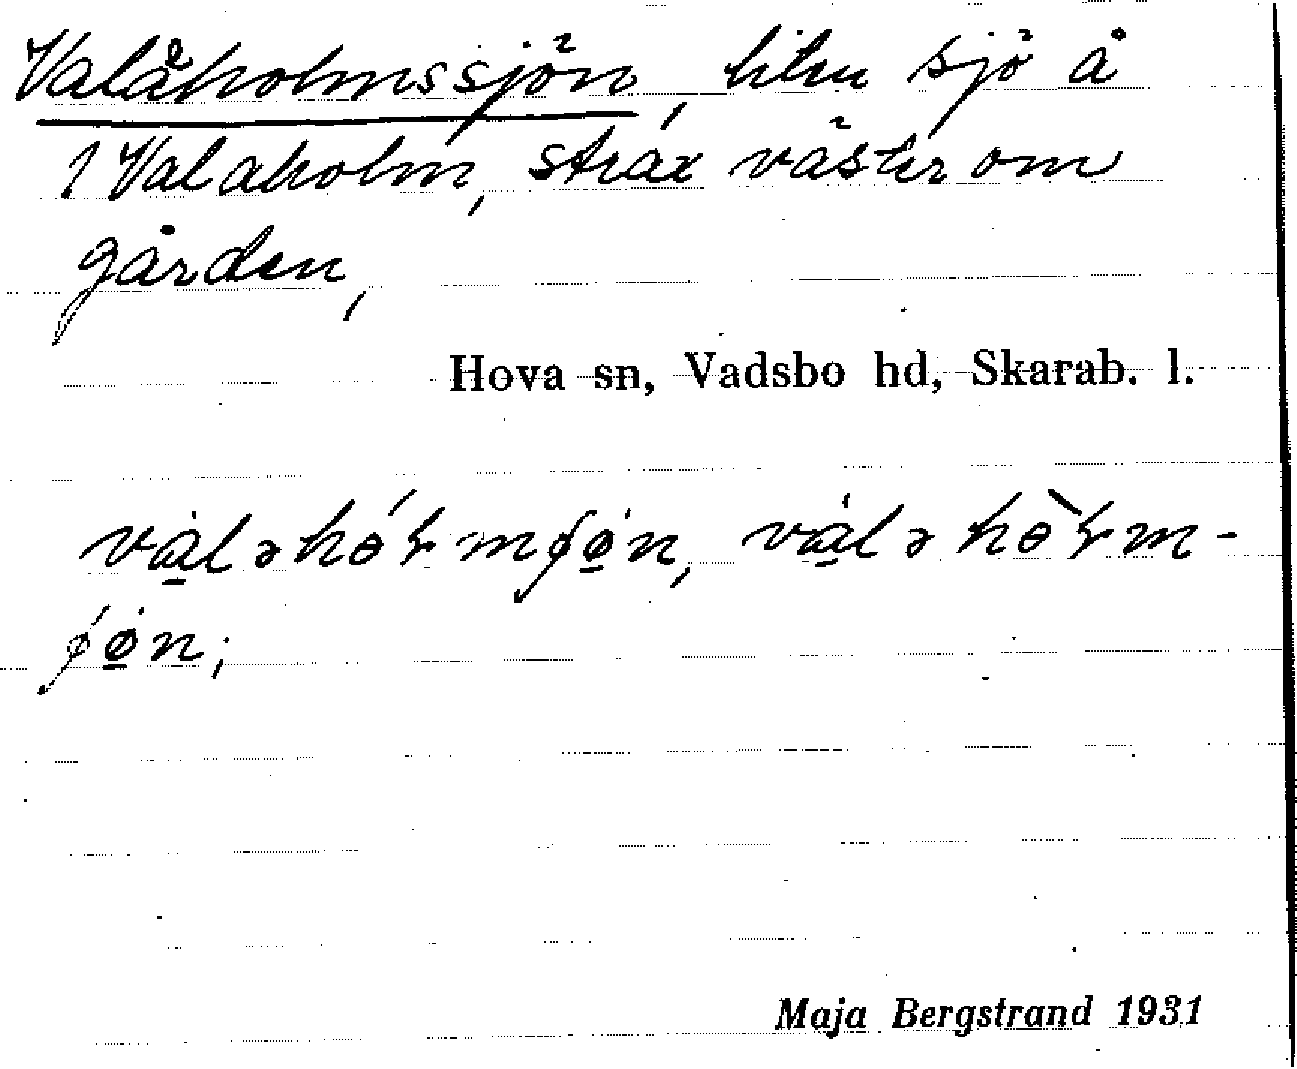 Valåholmssjön, liten sjö å
1 Valaholm, strax väster om
gården,
Hova sn, Vadsbo hd, Skarab. l.
Maja Bergstrand 1931